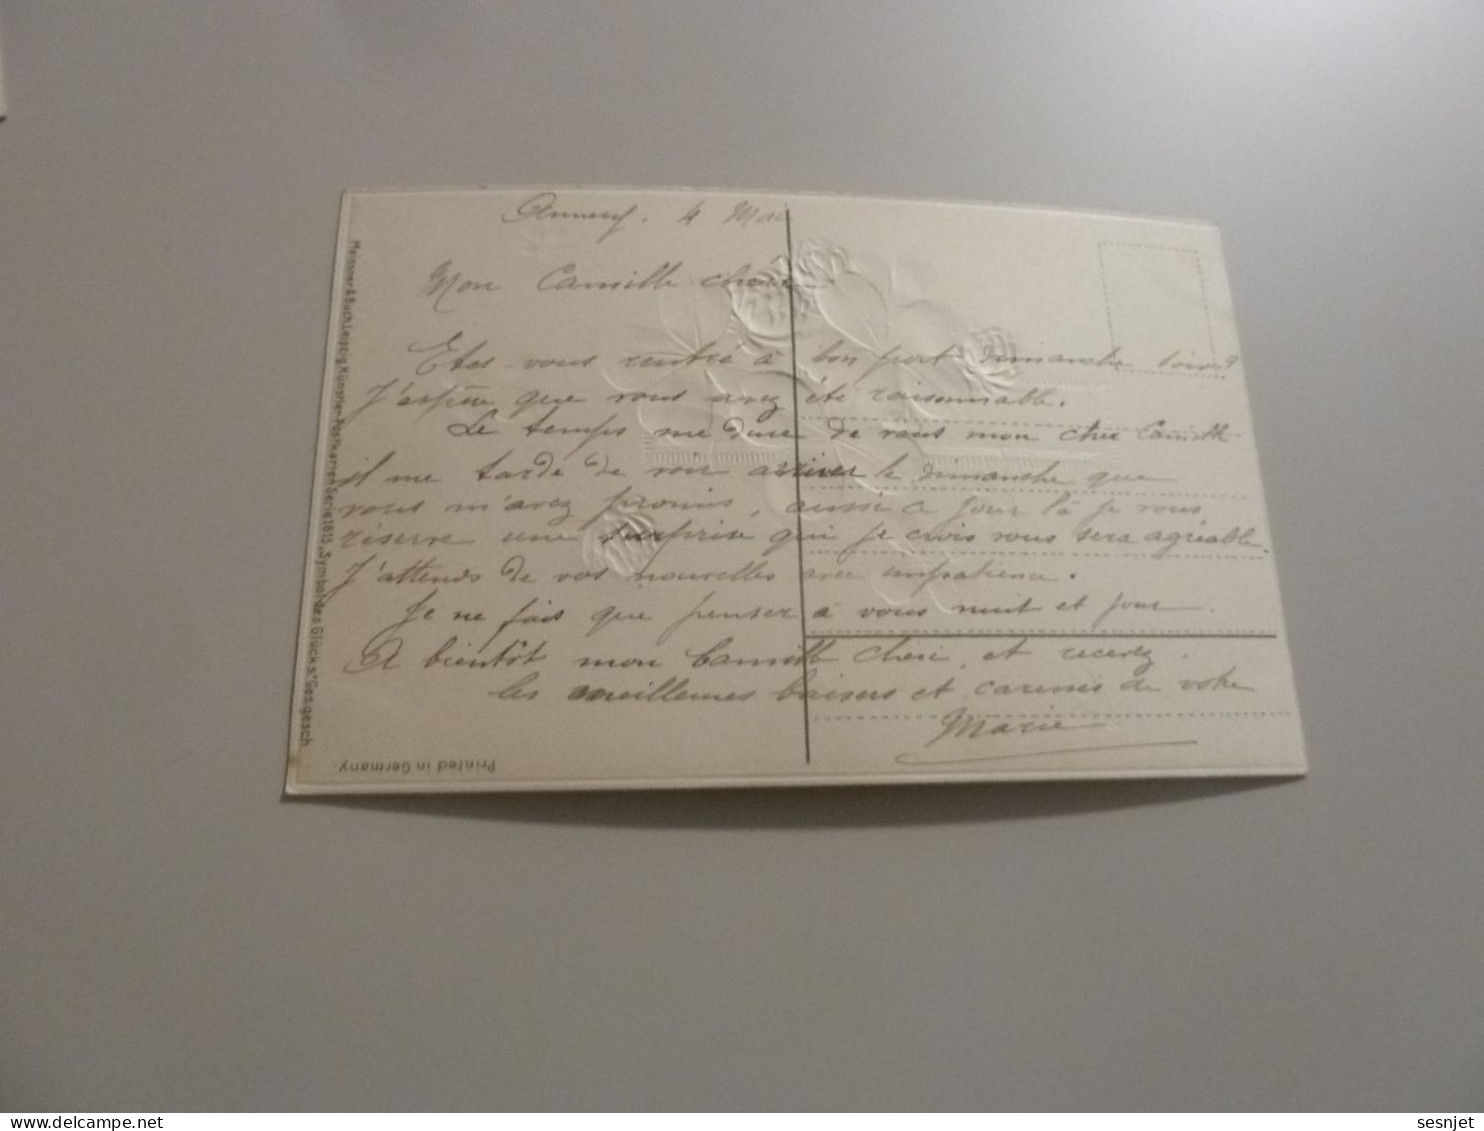 4 Mai
Mon Camille chéri
Etes-vous rentré à bon port dimanche soir ?
J'espère que vous avez été raisonnable.
Le temps me dure de vous mon cher Camille
il me tarde de voir arriver le dimanche que
vous m'avez promis, aussi ce jour là je vous
réserve une surprise qui je crois vous sera agréable.
J'attends de vos nouvelles avec impatience.
Je ne fais que penser à vous nuit et jour.
A bientôt mon Camille chéri, et recevez
les meilleures baisers et caresses de votre
Marie
Meissner & Buch, Leipzig, Künstler-Postkarten Serie 1615 „Symbol des Glücks" Ges. gesch.
Printed in Germany.
sesnjet
delcampe.net